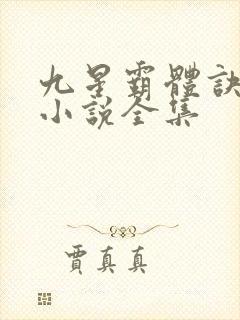 九星霸體訣
小說全集
賈真真